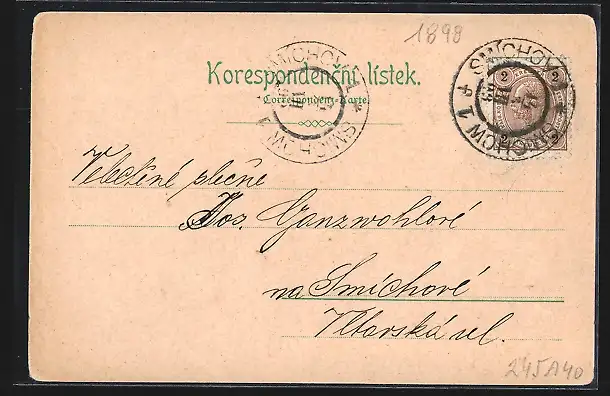 1898
Korespondenční lístek.
Correspondenz-Karte.
SMÍCHOV 1
SMICHOW 1
SMÍCHOV 1
SMICHOW 1
2 2
Velectěné slečně
Jos. Ganzwohlové
na Smíchově
Vltavská ul.
245A40